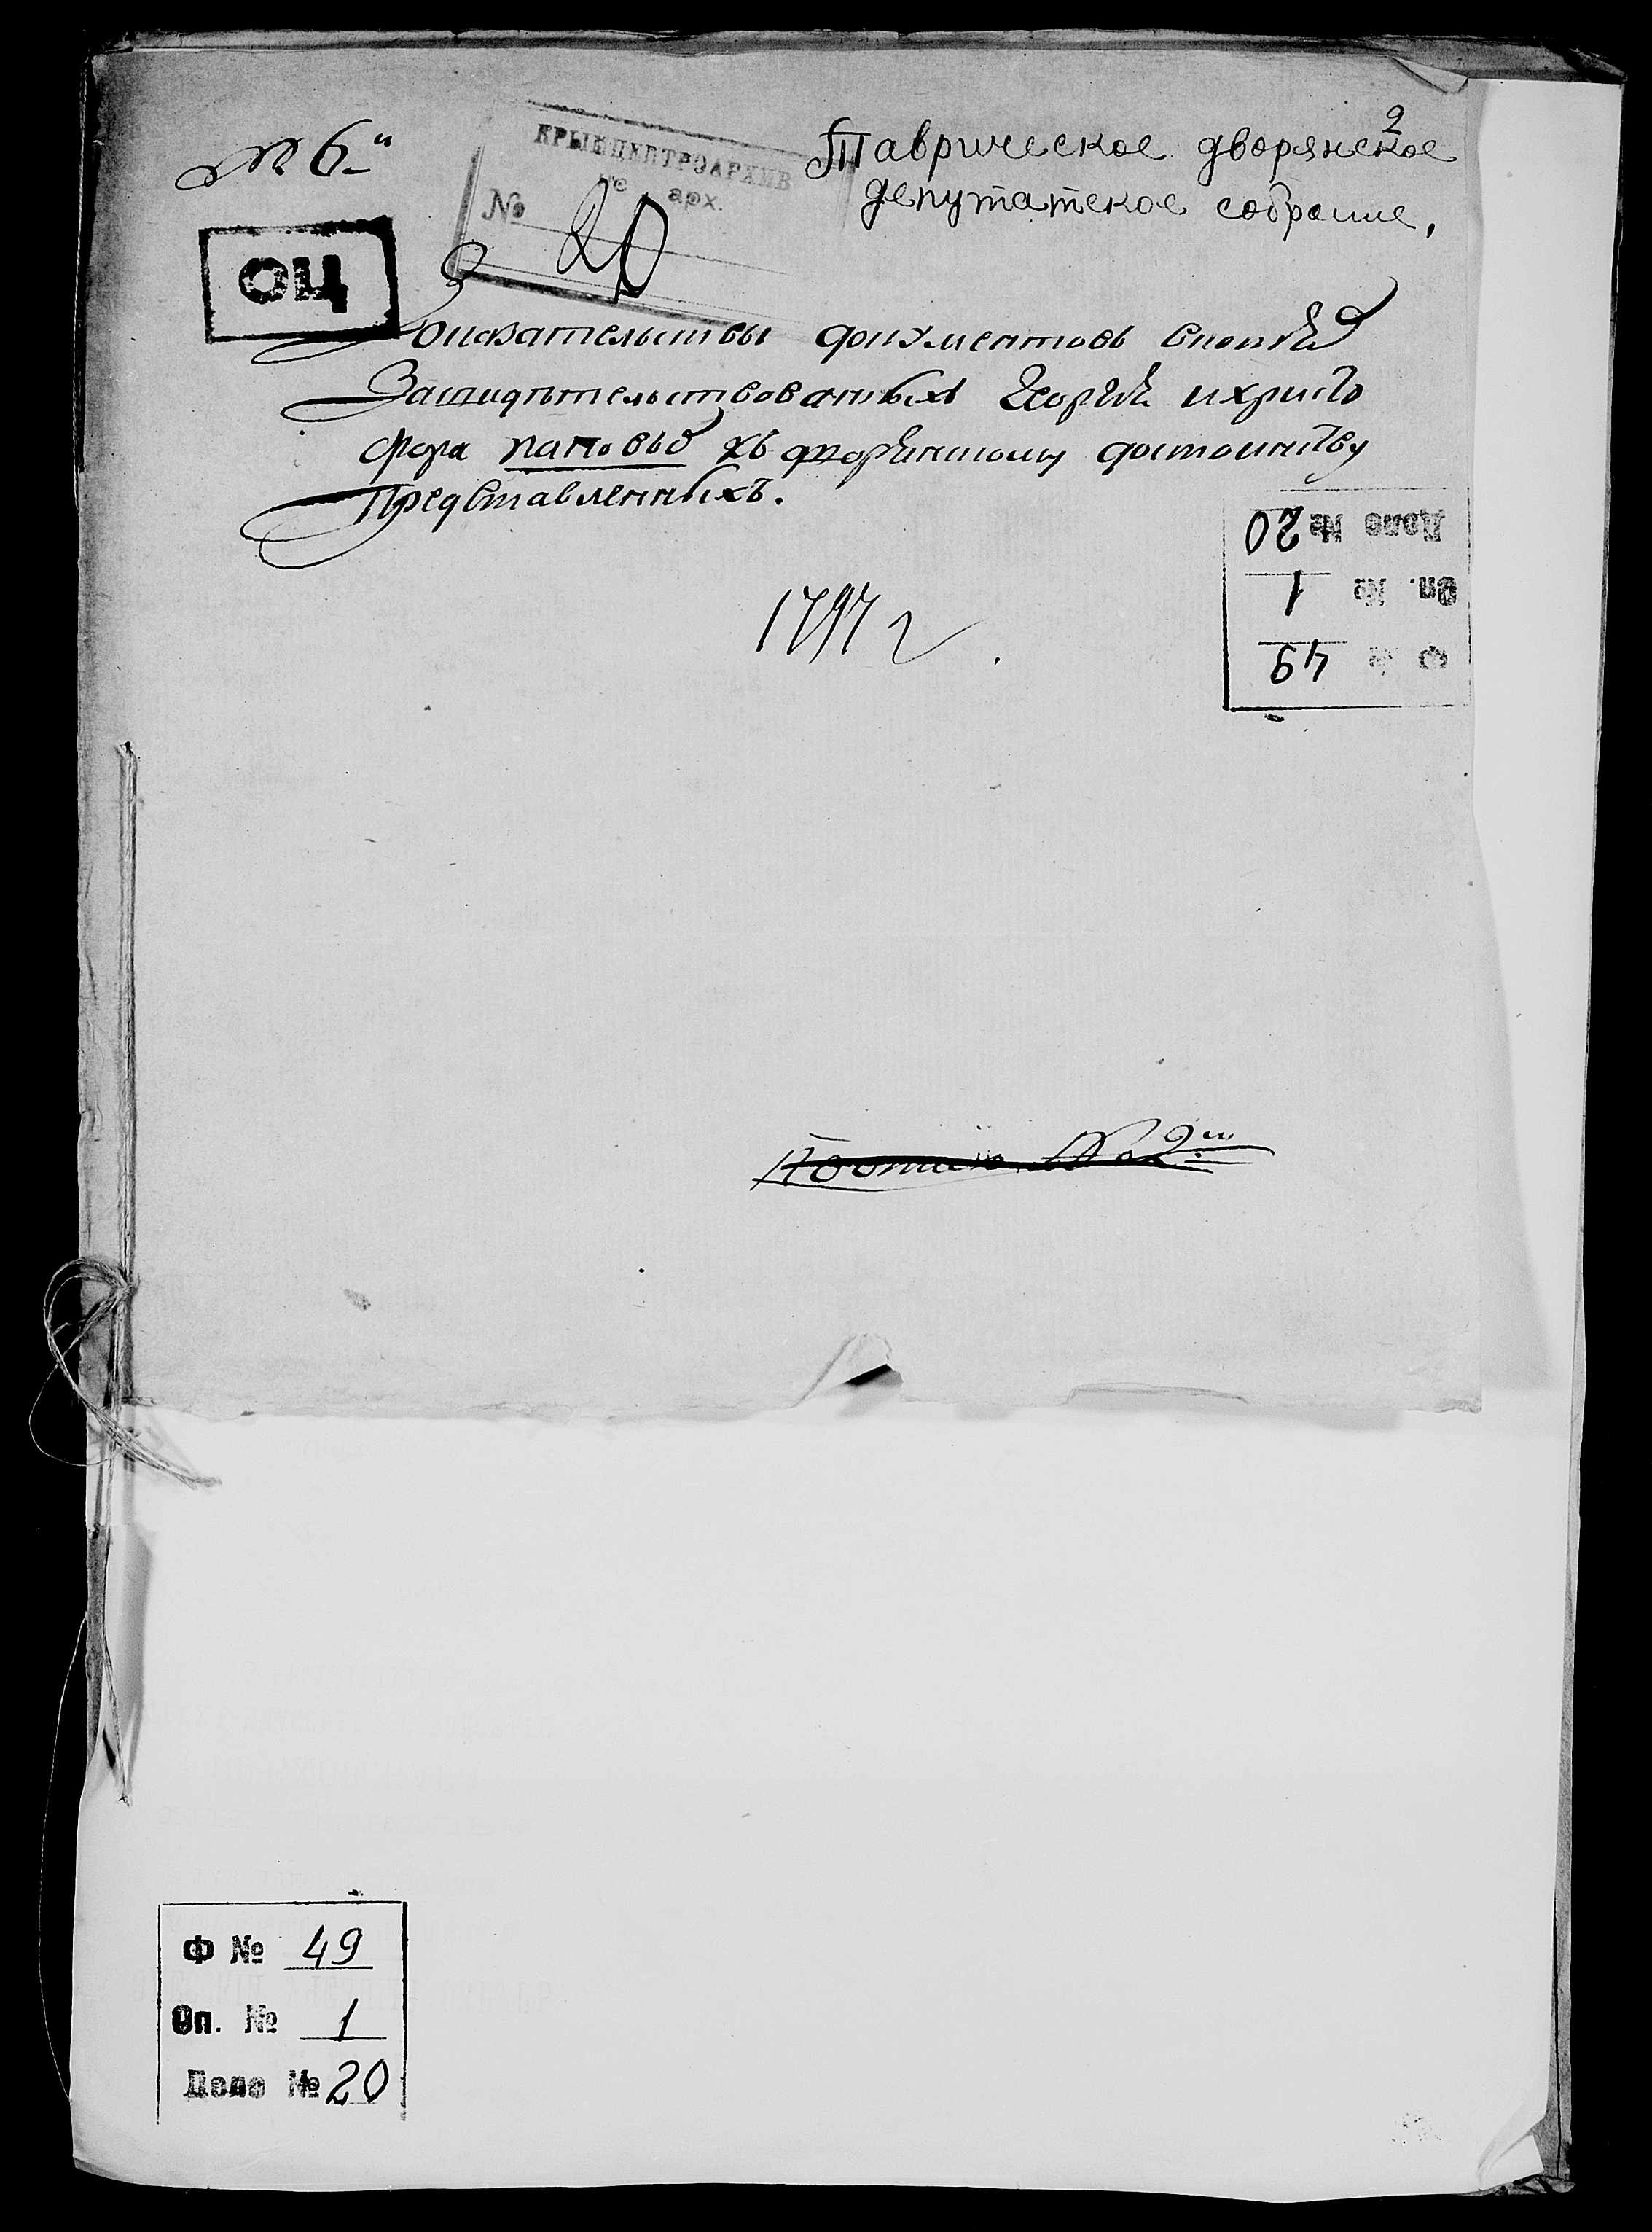 2
№ 6й
КРЫМЦЕНТРОАРХИВ
арх.
№ 20
Таврическое дворянское
депутатское собрание,
ОЦ
Доказательствы документовъ скопiй
Засвидѣтельствованныхъ Георгiя ихристо
фора паповыхъ къ дворянскому достоинству
Представленныхъ.
1797 г
Дело № 20
Оп. № 1
Ф № 49
Ф № 49
Оп. № 1
Дело № 20